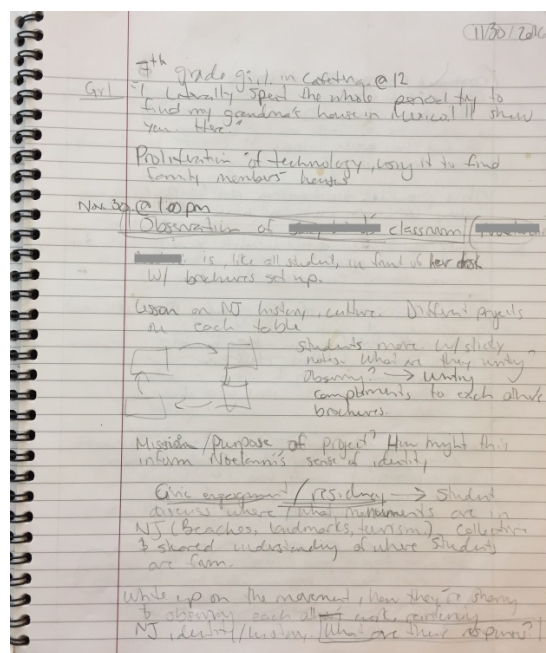 11/30/2016
7th grade girl in cafeteria @ 12
Girl "I literally spent the whole period try to
find my grandma's house in Mexico. I'll show
you. Here"
Proliferation of technology, using it to find
family members' houses
Nov 30 @ 1:00pm
Observation of classroom
is like all student, in front of her desk
w/ brochures set up.
Lesson on NJ history, culture. Different projects
on each table
Students move w/ sticky
notes. What are they writing?
Observing? → writing
compliments to each other's
brochures.
Mission/purpose of project? How might this
inform Noelanni's sense of identity,
Civic engagement / residency → Student
discuss where/what monuments are in
NJ (Beaches, landmarks, tourism). Collective
& shared understanding of where students
are from.
Write up on the movement, how they're sharing
& observing each work,
NJ, identity/history. What are their responses?